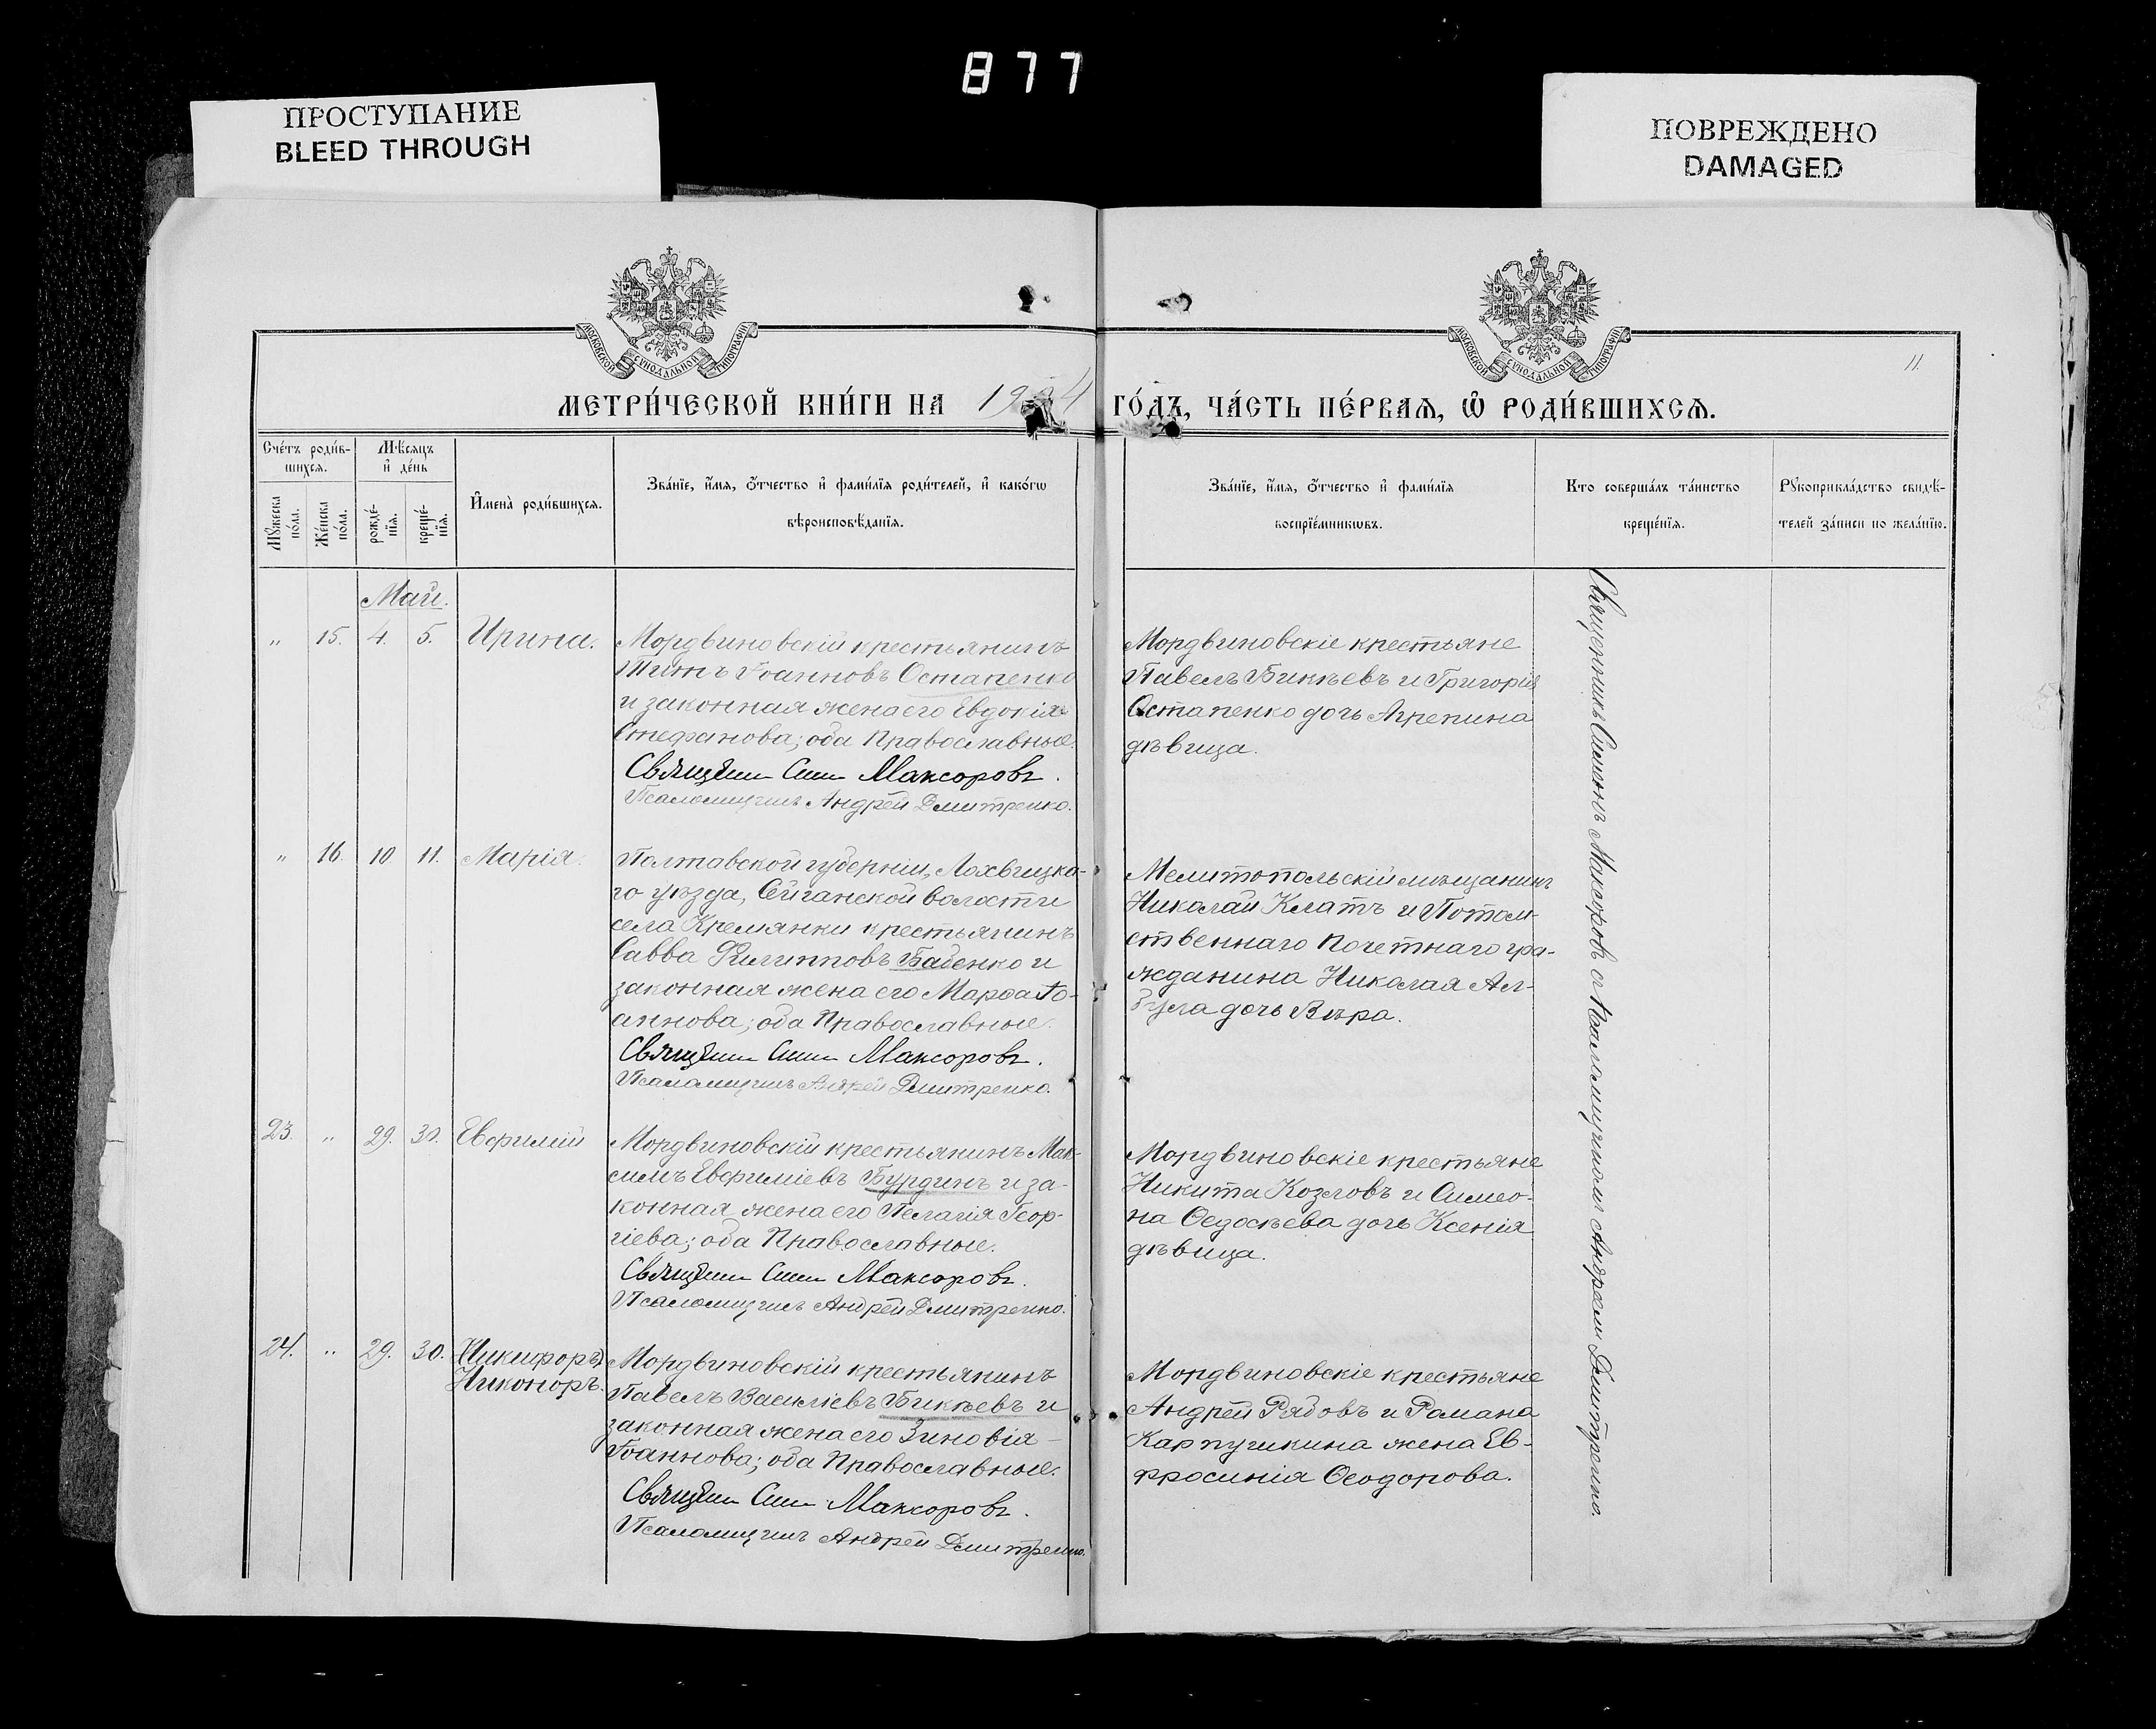 877
ПРОСТУПАНИЕ
BLEED THROUGH
ПОВРЕЖДЕНО
DAMAGED
МОСКОВСКОЙ СѴНОДАЛЬНОЙ ТИПОГРАФІИ
МОСКОВСКОЙ СѴНОДАЛЬНОЙ ТИПОГРАФІИ
11.
МЕТРИ́ЧЕСКОЙ КНИ́ГИ НА 1904 ГО́ДЪ, ЧА́СТЬ ПЕ́РВАѦ, Ѡ҆ РОДИ́ВШИХСѦ.
Сче́тъ роди́в-
шихсѧ.
Мѣ́сѧцъ
и҆ де́нь
Мꙋ́жеска
по́ла.
Же́нска
по́ла.
рожде́-
нїѧ.
креще́-
нїѧ.
И҆мена̀ роди́вшихсѧ.
Зва́нїе, и҆́мѧ, ѻ҆́тчество и҆ фами́лїѧ роди́телей, и҆ како́гѡ
вѣроисповѣ́данїѧ.
Зва́нїе, и҆́мѧ, ѻ҆́тчество и҆ фами́лїѧ
воспрїе́мникѡвъ.
Кто соверша́лъ та́инство
креще́нїѧ.
Рꙋкоприкла́дство свидѣ́-
телей за́писи по жела́нїю.
Май.
" 15. 4. 5. Ирина.
Мордвиновскій крестьянинъ
Титъ Іоанновъ Остапенко
и законная жена его Евдокія
Стефанова; оба Православные.
Священн Сим Максоровъ.
Псаломщикъ Андрей Дмитренко.
Мордвиновскіе крестьяне
Павелъ Бикѣевъ и Григорія
Остапенко дочь Агрепина
дѣвица.
" 16. 10 11. Марія.
Полтавской губерніи, Лохвицка-
го уѣзда, волости
села Кремянки крестьянинъ
Савва Филипповъ Бабенко и
законная жена его Марѳа Іо-
аннова; оба Православные.
Священн Сим Максоровъ.
Псаломщикъ Андрей Дмитренко.
Мелитопольскій мѣщанинъ
Николай Клатъ и Потом-
ственнаго Почетнаго гра-
жданина Николая Ал-
дочь Вѣра.
23. " 29. 30. Евфимій
Мордвиновскій крестьянинъ Мак-
симъ Евфиміевъ Бурдинъ и за-
конная жена его Пелагія Геор-
гіева; оба Православные.
Священн Сим Максоровъ.
Псаломщикъ Андрей Дмитренко.
Мордвиновскіе крестьяне
Никита Козловъ и Симео-
на Ѳедосѣева дочь Ксенія
дѣвица.
24. " 29. 30. (Никифоръ)
Никоноръ.
Мордвиновскій крестьянинъ
Павелъ Василіевъ Бикѣевъ и
законная жена его Зиновія
Іоаннова; оба Православные.
Священн Сим Максоровъ.
Псаломщикъ Андрей Дмитренко.
Мордвиновскіе крестьяне
Андрей Рябовъ и Романа
Карпушкина жена Ев-
фросинія Ѳеодорова.
Священникъ Симеонъ Максоровъ съ Псаломщикомъ Андреем Дмитренко.